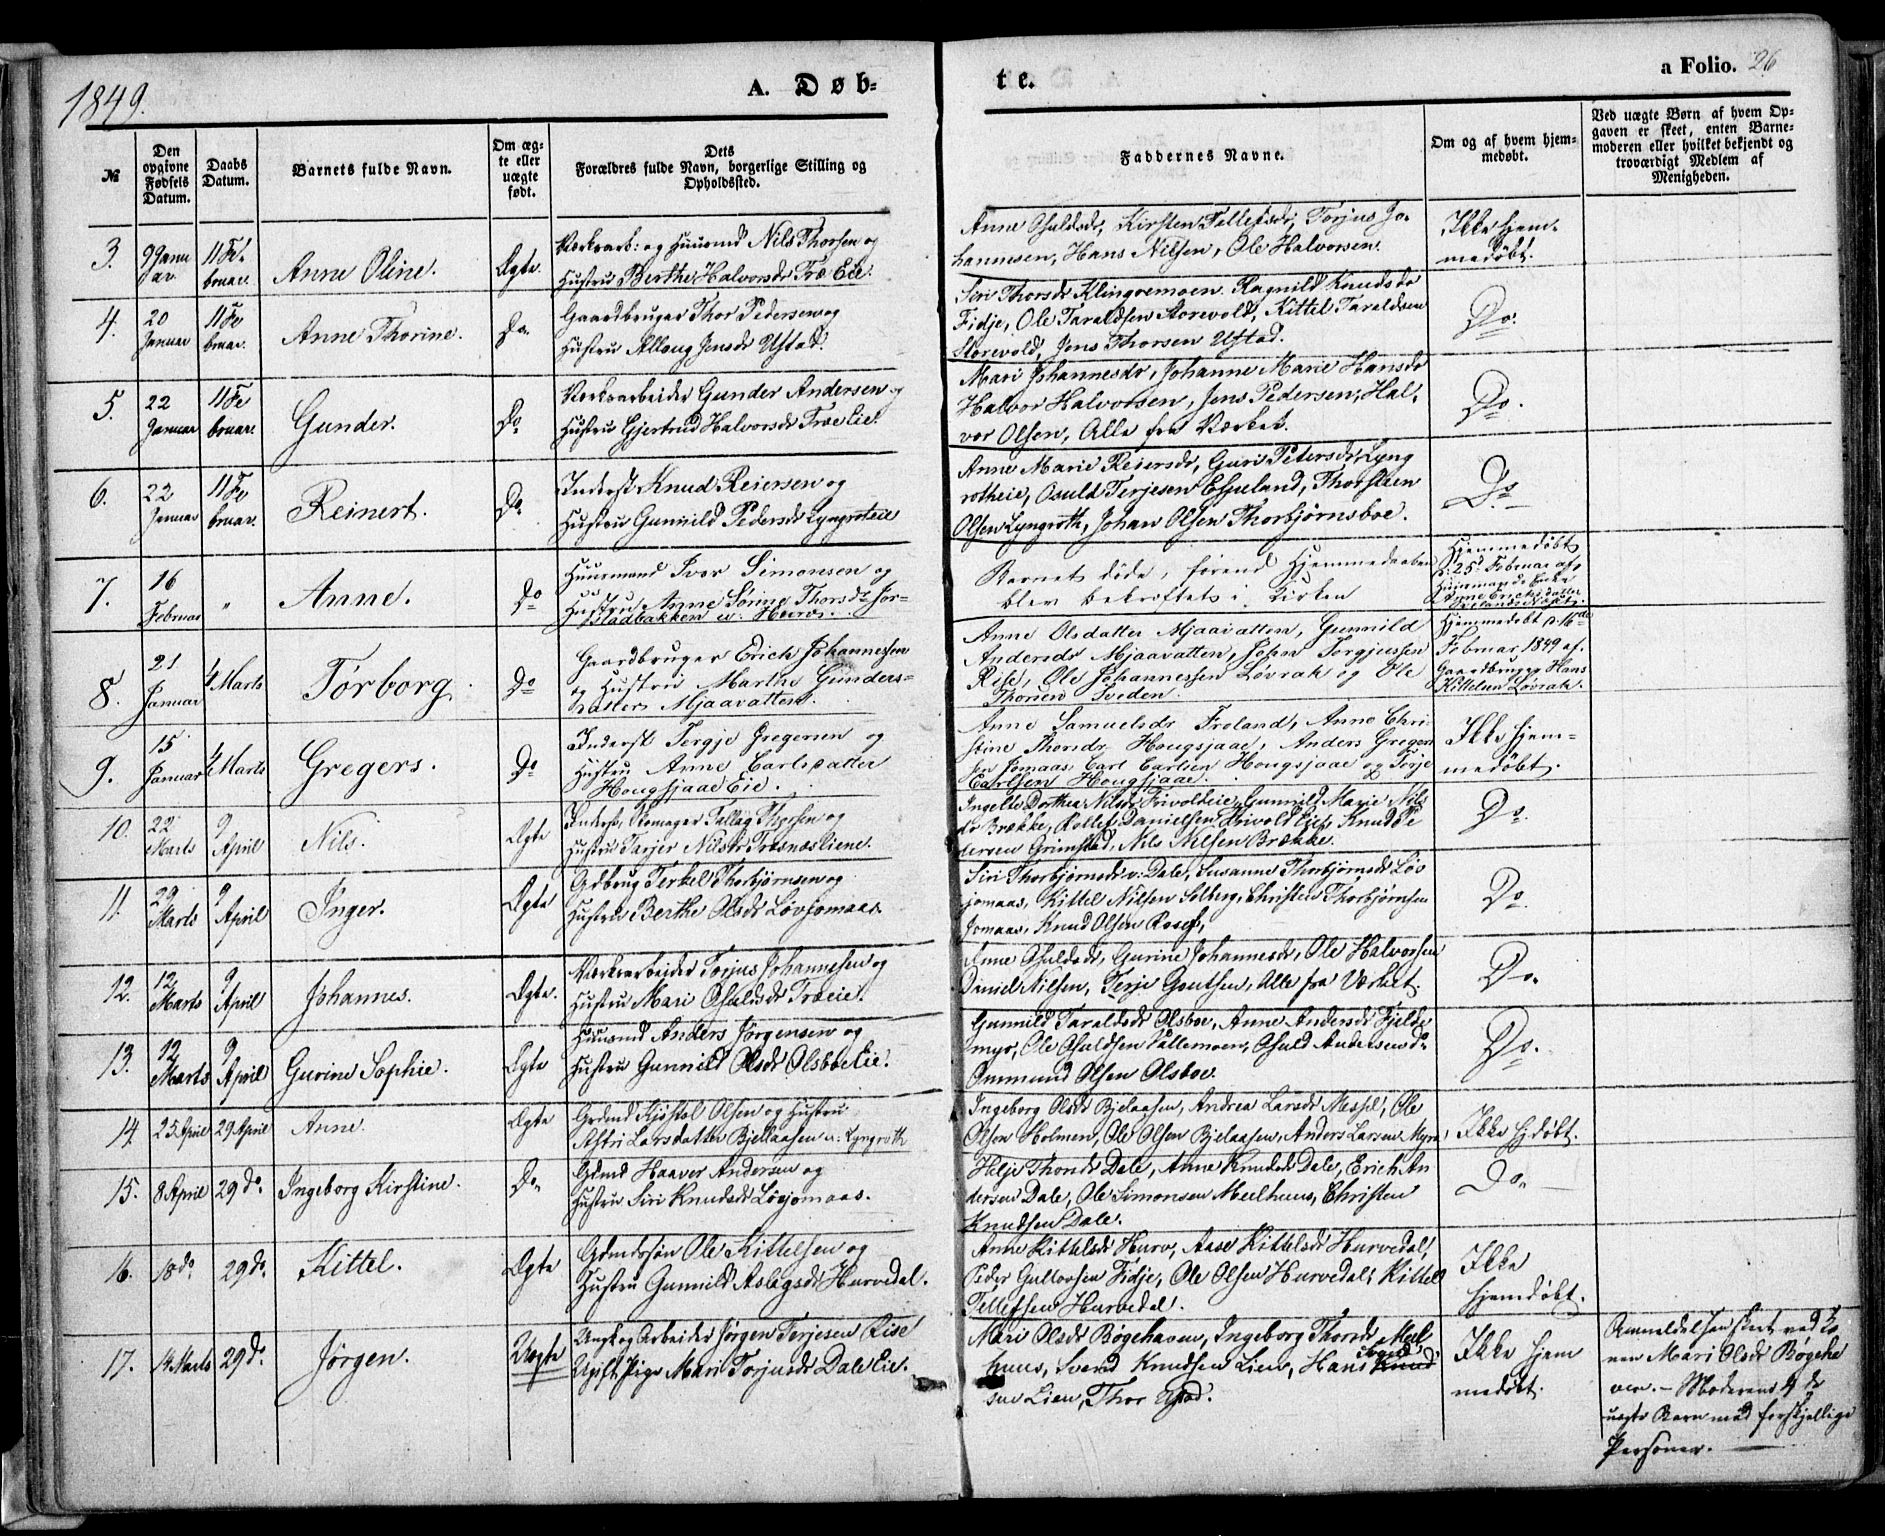 1849.
A. Døb-
te.
a Folio. 26
№
Den opgivne Fødsels Datum.
Daabs Datum.
Barnets fulde Navn.
Om ægte eller uægte født.
Dets Forældres fulde Navn, borgerlige Stilling og Opholdssted.
Faddernes Navne.
Om og af hvem hjemmedøbt.
Ved uægte Børn af hvem Opgaven er skeet, enten Barnemoderen eller hvilket bekjendt og troværdigt Medlem af Menigheden.
3. 9 Januar 11 Februar. Anne Oline. Ægte.
Værksarb: og Huusmd Nils Thorsen og
Hustru Berthe Halvorsdr Træ Eie.
Anne Osuldsdr, Kirsten Tellefsdr, Torjus Jo-
hannesen, Hans Nilsen, Ole Halvorsen.
Ikke hjem-
medøbt.
4. 20 Januar 11 Februar. Anne Thorine. Do.
Gaardbruger Thor Pedersen og
Hustru Allaug Jensdr Ufstad.
Siri Thorsdr Klingremoen. Ragnild Knudsdr
Fidje, Ole Taraldsen Storevold, Kittel Taraldsen
Storevold, Jens Thorsen Ufstad.
Do.
5. 22 Januar 11 Februar. Gunder. Do
Værksarbeider Gunder Andersen og
Hustru Gjertrud Halvorsdr Træ Eie.
Mari Johannesdr, Johanne Marie Hansdr
Halvor Halvorsen, Jens Pedersen, Hal-
vor Olsen, Alle fra Værket.
Do.
6. 22 Januar 11 Februar. Reinert. Do
Inderst Knud Reiersen og
Hustru Gunnild Pedersdr Lyngroteie
Anne Marie Reiersdr, Guri Petersdr Lyng
rotheie, Osuld Terjesen Espeland, Thorsteen
Olsen Lyngroth, Johan Olsen Thorbjørnsboe.
Do
7. 16 Februar " Anne. Do
Huusmand Iver Simonsen og
Hustru Anne Sørine Thorsdr
Barnet døde, førend Hjemmedaaben
blev bekræftet i Kirken
Hjemmedøbt
d: 25de Februar af
Huusmands Enke
Anne Erichsdatter
8. 21 Januar 4 Marts Torborg Do
Gaardbruger Erich Johannessen
og Hustru Marthe Gunders-
datter Mjaavatten.
Anne Olsdatter Mjaavatten, Gunnild
Andersdr Mjaavatten, John Torgjussen
Rise, Ole Johannessen Løvrak og Ole
Thorsen Sveden.
Hjemmedøbt d. 16de
Februar 1849 af.
Gaardbruger Hans
Kittelsen Løvrak.
9. 15 Januar 4 Marts Gregers. Do
Inderst Tergje Gregersen og
Hustru Anne Carlsdatter
Hougsjaae Eie.
Anne Samuelsdr Froland, Anne Chri-
stine Thorsdr Hougsjaae, Anders Gregers
sen Jomaas, Carl Carlsen Hougsjaae og Terje
Carlsen Hougsjaae.
Ikke hjem-
medøbt.
10. 22 Marts 9 April Nils. Ægte
Inderst, Skomager Tallag Thorsen og
Hustru Tarjer Nilsdr Træsnæs Eiene.
Ingebe Dorthea Nilsdr Frivoldeie, Gunnild Marie Nils
dr Brække, Rollef Danielsen Frivold Eie, Knud Pe
dersen Grimstad, Nils Nilsen Brække.
Do.
11. 29 Marts 9 April Inger. Ægte
Gdbrug Terkel Thorbjørnsen og
Hustru Berthe Olsdr Løvjomaas.
Siri Thorbjørnsdr v: Dale, Susanne Thorbjørnsdr Løv
jomaas, Kittel Nilsen Solberg, Christen Thorbjørnsen
Jomaas, Knud Olsen Rosef,
Do.
12. 12 Marts 9 April Johannes. Ægte.
Værksarbeider Torjus Johannesen og
Hustru Mari Osuldsdr Træ Eie.
Anne Osuldsdr, Gurine Johannesdr, Ole Halvorsen
Daniel Nilsen, Terje Goutsen, Alle fra Værket.
Do.
13. 12 Marts 9 April Gurine Sophie. Ægte
Huusmd Anders Jørgensen og
Hustru Gunnild Olsdr Olsboe Eie.
Gunnild Taraldsdr Olsboe, Anne Andersdr Fjelde
myr, Ole Osuldsen Vallemoen, Osuld Andersen do
Ommund Olsen Olsboe.
Do.
14. 25 April 29 April Anne. Ægte
Grdmd Kjøstel Olsen og Hustru
Astri Larsdatter Bjellaasen u: Lyngroth
Ingeborg Olsdr Bjelaasen, Andrea Larsdr Messel, Ole
Olsen Holmen, Ole Olsen Bjelaasen, Anders Larsen Myre
Ikke Hjdøbt.
15. 8 April 29 do. Ingeborg Kirstine. Do.
Gdmd Haaver Andersen og
Hustru Siri Knudsdr Løvjomaas.
Helje Thorsdr Dale, Anne Knudsdr Dale, Erich An
dersen Dale, Ole Simonsen Meelhuus, Christen
Knudsen Dale.
Do.
16. 18 do. 29 do. Kittel. Ægte
Gdmdssøn Ole Kittelsen og
Hustru Gunnild Aslagsdr Hurvedal.
Anne Kittelsdr Hurv, Aase Kittelsdr Hurvedal,
Peder Gullovsen Fidje, Ole Olsen Hurvedal, Kittel
Tellefsen Hurvedal.
Ikke
hjemdøbt.
17. 14 Marts 29 do. Jørgen. Uægte
Ungk og Arbeider Jørgen Terjesen Rise
Ugift Pige Mari Torjusdr Dale Eie.
Mari Olsdr Bøgehaven, Ingeborg Thorsdr Meel
huus, Svend Knudsen Lien, Hans Svend Knud
sen Lien, Thor Ufstad.
Ikke hjem
medøbt.
Anmeldelsen skeet ved Ko
nen Mari Olsdr Bøgeha
ven. – Moderens 4de
uægte Barn med forskjellige
Personer.